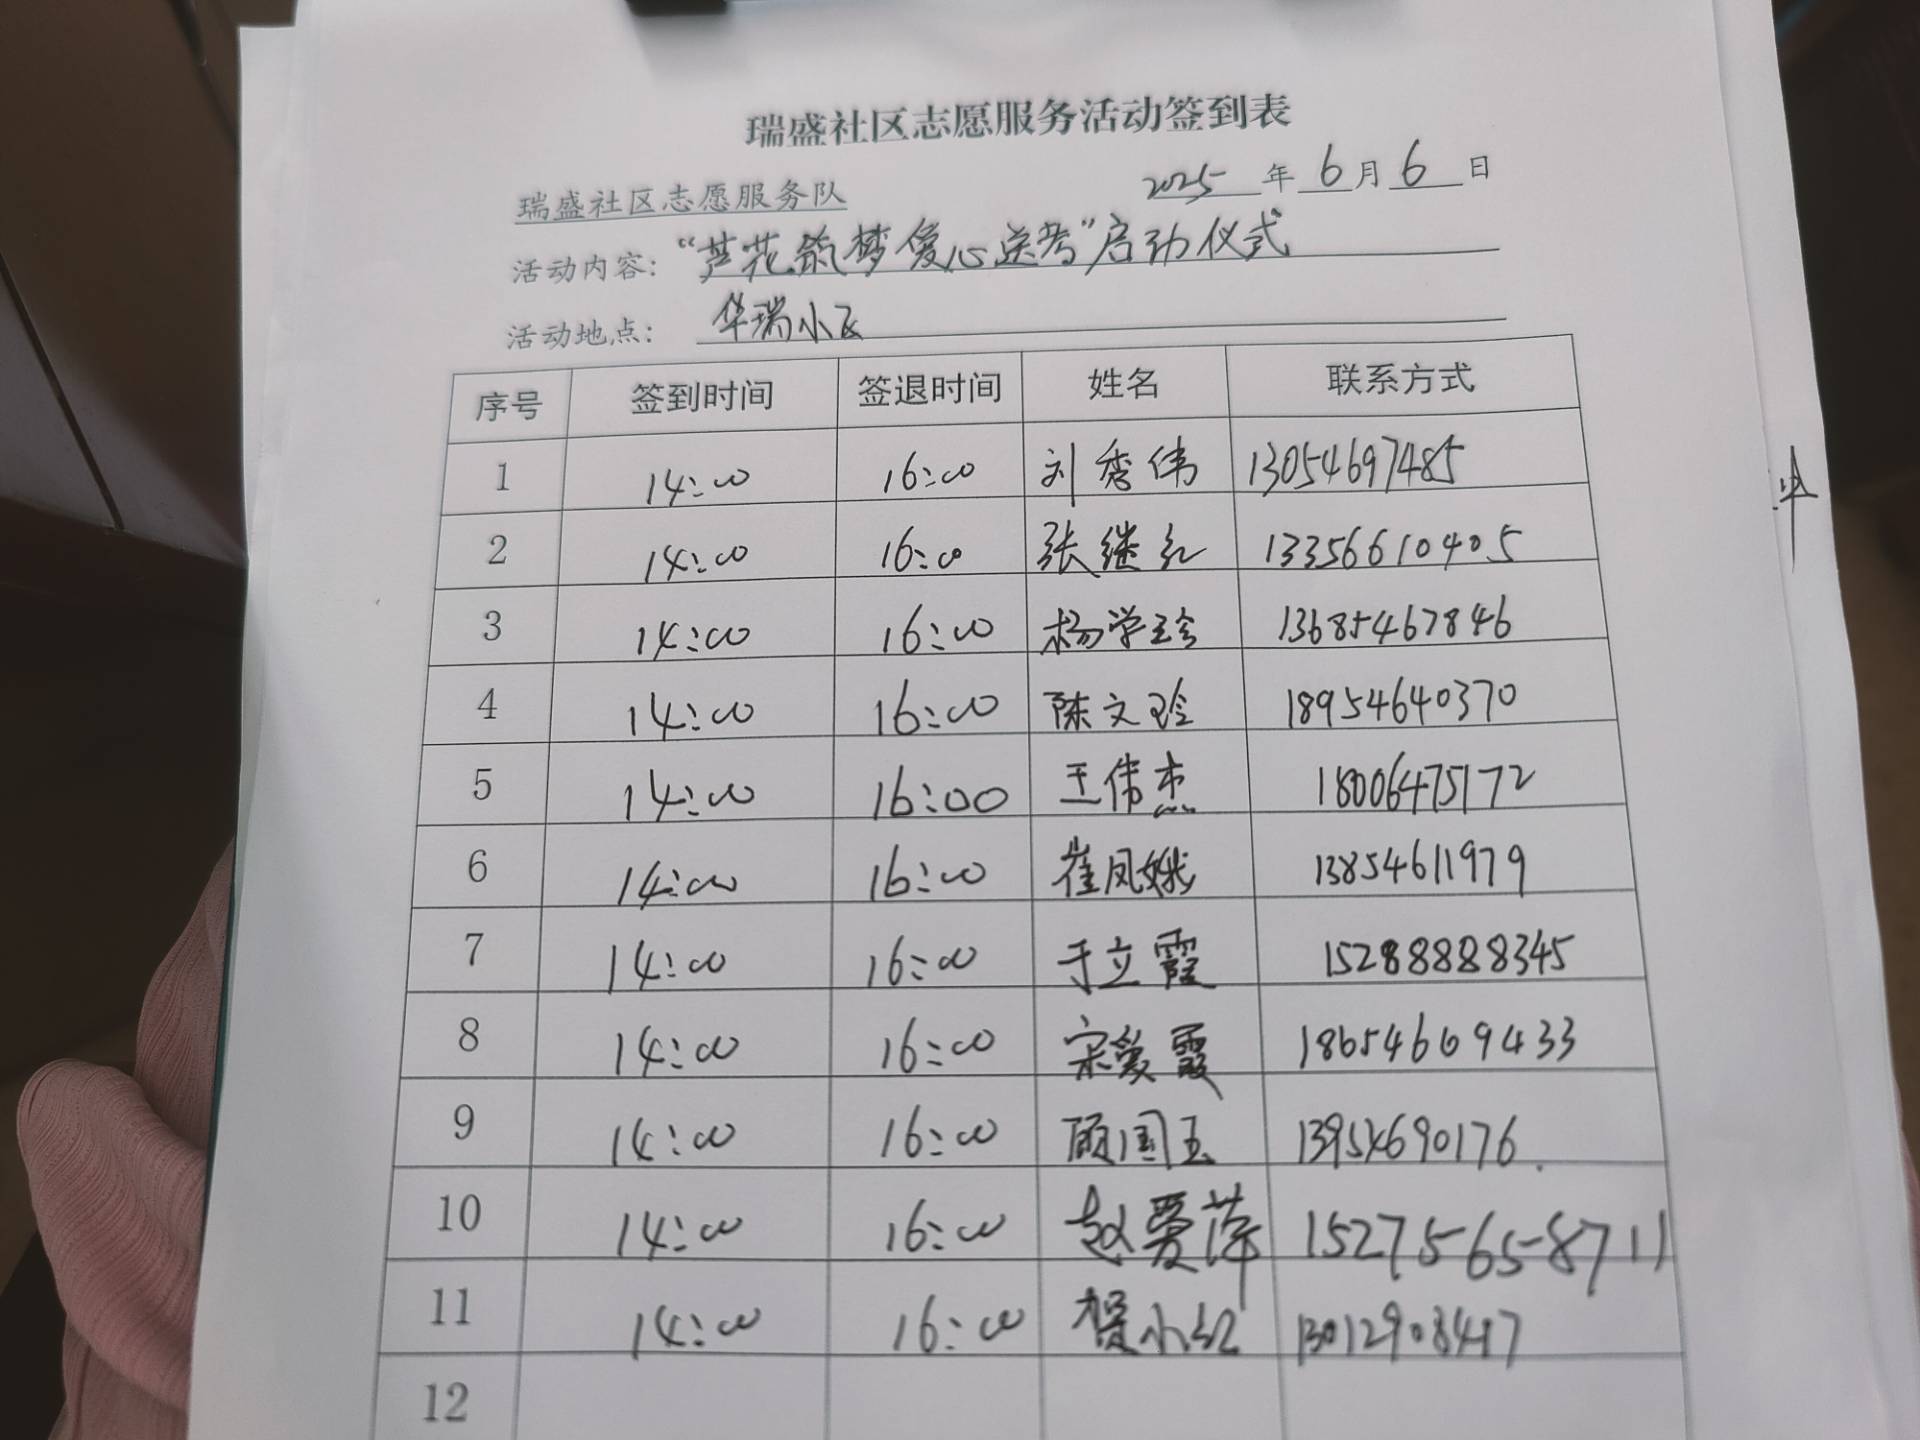 瑞盛社区志愿服务活动签到表
2025 年 6 月 6 日
瑞盛社区志愿服务队
活动内容: “芦花筑梦爱心送考”启动仪式
活动地点: 华瑞小区
序号 签到时间 签退时间 姓名 联系方式
1 14:00 16:00 刘秀伟 13054697485
2 14:00 16:00 张继红 13356610405
3 14:00 16:00 杨学珍 13685467846
4 14:00 16:00 陈文玲 18954640370
5 14:00 16:00 王伟杰 18006475172
6 14:00 16:00 崔凤娥 13854611979
7 14:00 16:00 于立霞 15288888345
8 14:00 16:00 宋爱霞 18654669433
9 14:00 16:00 顾国玉 13954690176.
10 14:00 16:00 赵爱萍 15275-65-8711
11 14:00 16:00 小红
12